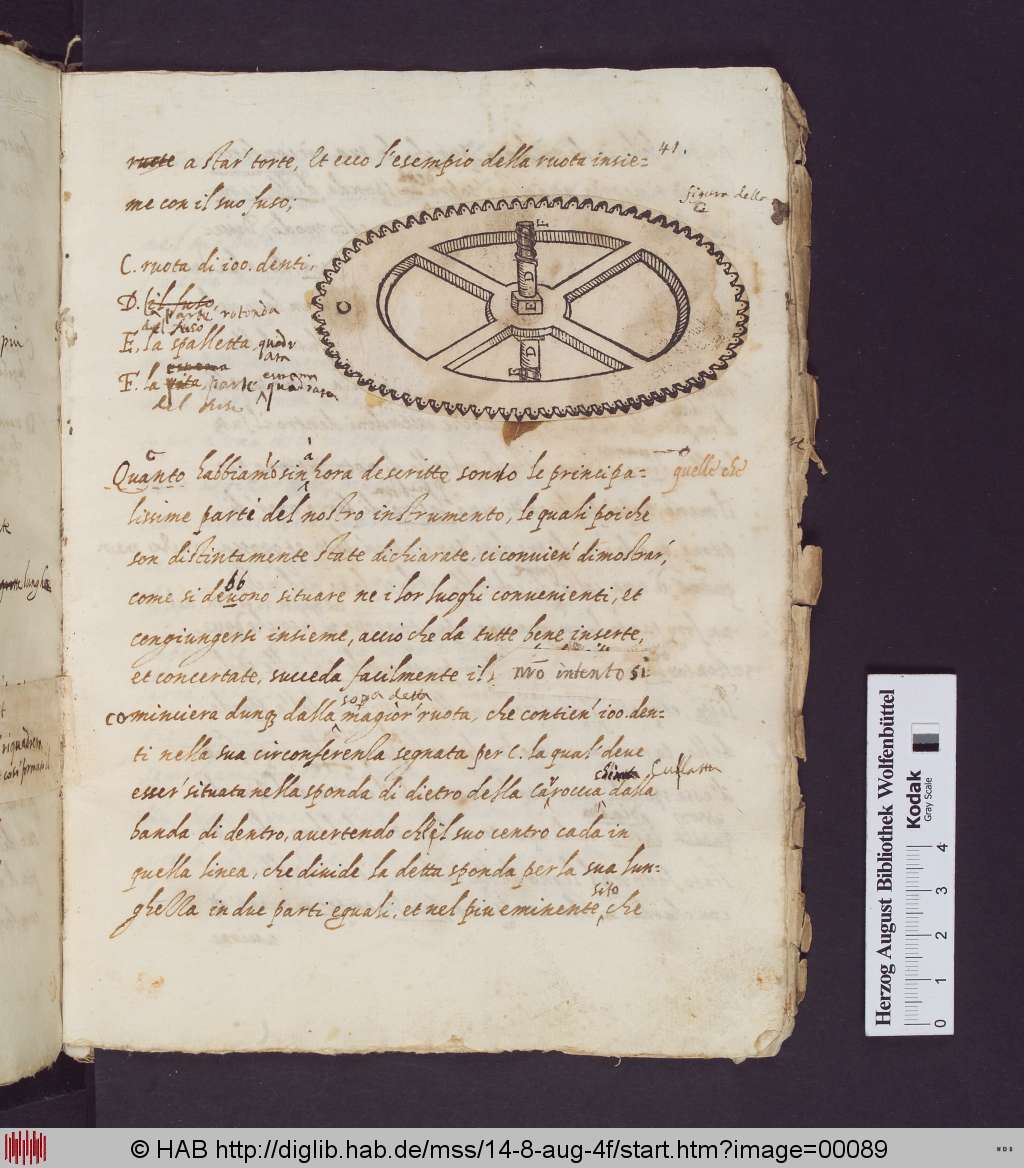 41.
ruote a star' torte, et ecco l'esempio della ruota insie=
me con il suo fuso;
figura della
C. ruota di 100. denti.
D. il fuso
parte rotonda
del fuso
E. la spalletta quadr
ata
F. la vita, parte quadrata
estrema
del fuso
C
F
D
E
D
F
Quanto habbiamo sin' à hora descritto sonno le principa=
quelle che
lissime parti del nostro instrumento, le quali poi che
son distintamente state dichiarate, ci convien' di mostrar',
come si devono situare ne i lor luoghi convenienti, et
bb
congiungersi insieme, accio che da tutte bene inserte,
et concertate, succeda facilmente il nro intento si
cominciera dunq dalla magior' ruota, che contien' 100. den=
sopa detta
ti nella sua circonferenza segnata per C. la qual' deve
esser' situata nella sponda di dietro della carroccia dalla
banda di dentro, avertendo ch'il suo centro cada in
quella linea, che divide la detta sponda per la sua lun=
ghezza in due parti eguali, et nel piu eminente sito che
Herzog August Bibliothek Wolfenbüttel
Kodak
Gray Scale
0 1 2 3 4
© HAB http://diglib.hab.de/mss/14-8-aug-4f/start.htm?image=00089